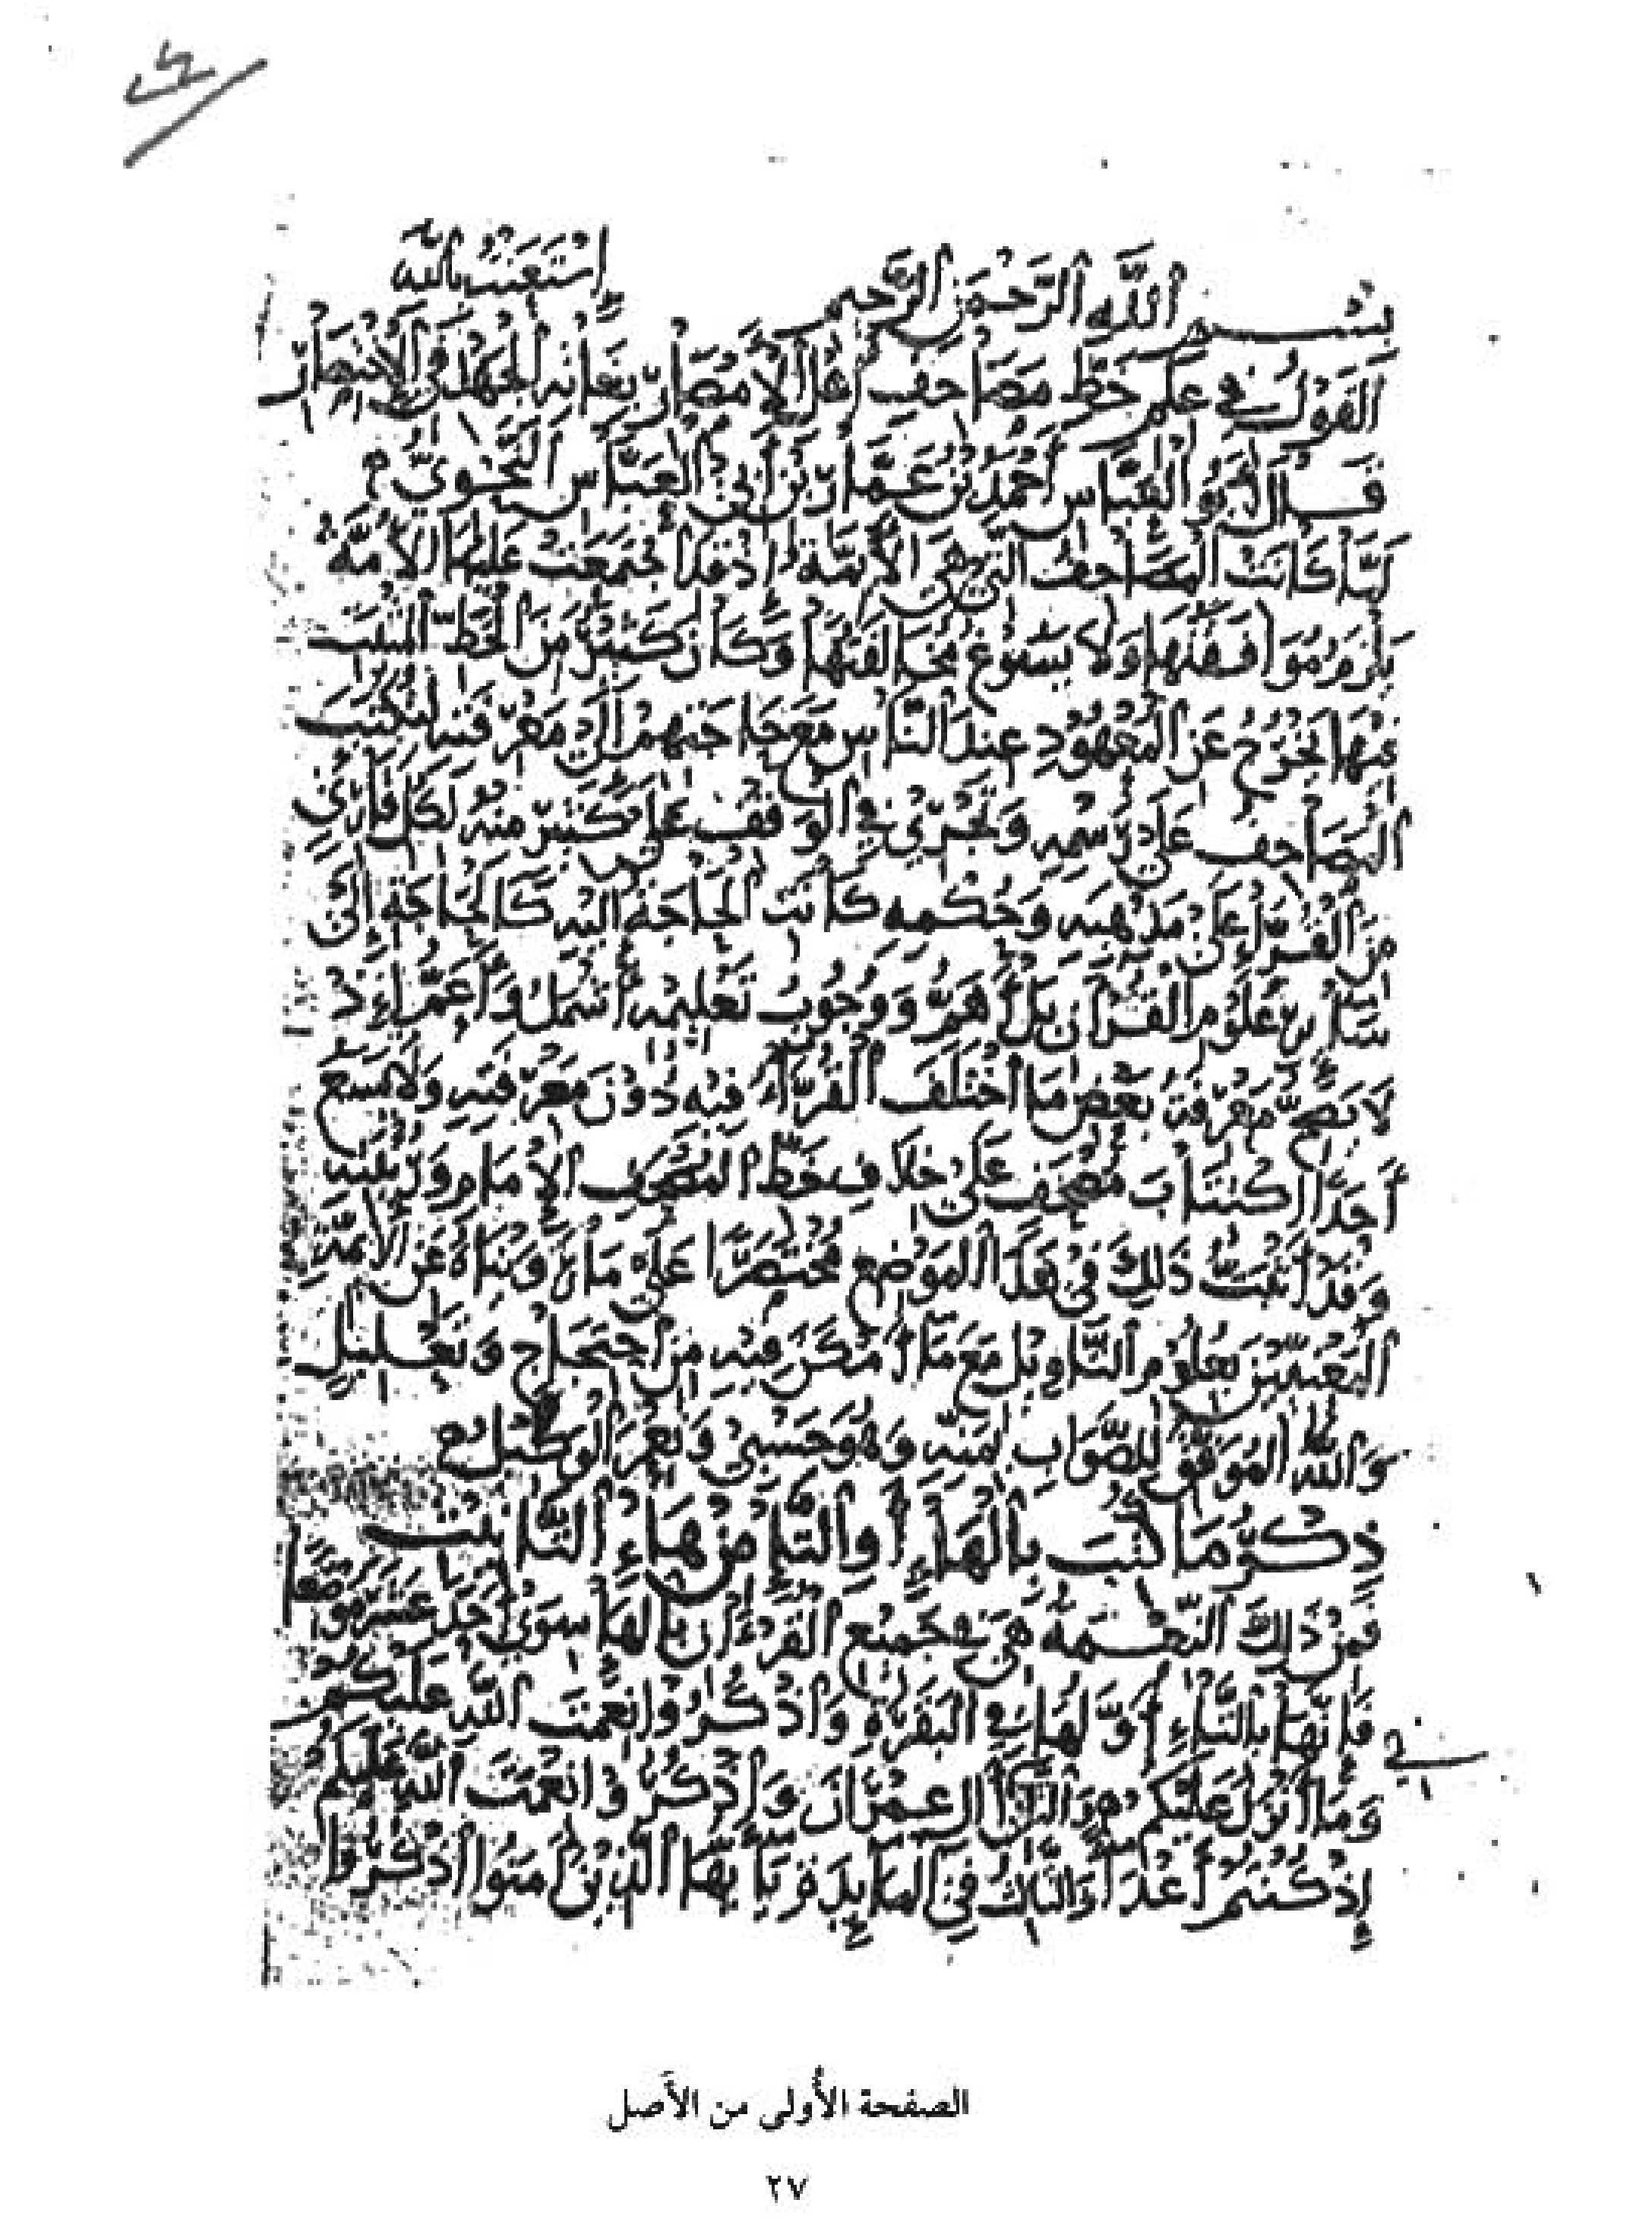 بِسْمِ اللَّهِ الرَّحْمَنِ الرَّحِيمِ اسْتَعَنْتُ بِاللَّهِ
الْقَوْلُ فِي عِلْمِ خَطِّ مَصَاحِفِ أَهْلِ الْأَمْصَارِ بِغَايَةِ الْجُهْدِ وَالِاخْتِصَارِ
قَالَ أَبُو الْعَبَّاسِ أَحْمَدُ بْنُ عَمَّارِ بْنِ أَبِي الْعَبَّاسِ النَّحْوِيُّ
لَمَّا كَانَتِ الْمَصَاحِفُ الَّتِي هِيَ الْأَئِمَّةُ إِذْ قَدِ اجْتَمَعَتْ عَلَيْهَا الْأُمَّةُ
يَلْزَمُ مُوَافَقَتُهَا وَلَا يَسُوغُ مُخَالَفَتُهَا وَكَانَ كَثِيرٌ مِنَ الْخَطِّ الْمُثْبَتِ
فِيهَا يَخْرُجُ عَنِ الْمَعْهُودِ عِنْدَ النَّاسِ مَعَ حَاجَتِهِمْ إِلَى مَعْرِفَتِهِ لِتُكْتَبَ
الْمَصَاحِفُ عَلَى رَسْمِهِ وَتَجْرِيَ فِي الْوَقْفِ عَلَى كَثِيرٍ مِنْهُ لِكُلِّ قَارِئٍ
مِنَ الْقُرَّاءِ عَلَى مَذْهَبِهِ وَحُكْمِهِ كَانَتِ الْحَاجَةُ إِلَيْهِ كَالْحَاجَةِ إِلَى
سَائِرِ عُلُومِ الْقُرْآنِ بَلْ أَهَمُّ وَوُجُوبُ تَعْلِيمِهِ أَشْمَلُ وَأَعَمُّ إِذْ
لَا يَصِحُّ مَعْرِفَةُ بَعْضِ مَا اخْتَلَفَ الْقُرَّاءُ فِيهِ دُونَ مَعْرِفَتِهِ وَلَا يَسَعُ
أَحَدًا اكْتِتَابَ مُصْحَفٍ عَلَى خِلَافِ خَطِّ الْمُصْحَفِ الْإِمَامِ وَرُتْبَتِهِ
وَقَدْ أَثْبَتُّ ذَلِكَ فِي هَذَا الْمَوْضِعِ مُخْتَصَرًا عَلَى مَا رُوِّينَاهُ عَنِ الْأَئِمَّةِ
الْمَعْنِيِّينَ بِعُلُومِ التَّأْوِيلِ مَعَ مَا أَمْكَنَ فِيهِ مِنِ احْتِجَاجٍ وَتَعْلِيلٍ
وَاللَّهُ الْمُوَفِّقُ لِلصَّوَابِ بِمَنِّهِ وَهُوَ حَسْبِي وَنِعْمَ الْوَكِيلُ
ذِكْرُ مَا كُتِبَ بِالْهَاءِ أَوِ التَّاءِ مِنْ هَاءِ التَّأْنِيثِ
فَمِنْ ذَلِكَ النِّعْمَةُ هِيَ فِي جَمِيعِ الْقُرْءَانِ بِالْهَاءِ سِوَى أَحَدَ عَشَرَ مَوْضِعًا
فَإِنَّهَا بِالتَّاءِ أَوَّلُهَا فِي الْبَقَرَةِ وَاذْكُرُوا نِعْمَتَ اللَّهِ عَلَيْكُمْ
وَمَا أَنْزَلَ عَلَيْكُمْ وَالثَّانِي فِي آلِ عِمْرَانَ وَاذْكُرُوا نِعْمَتَ اللَّهِ عَلَيْكُمْ
إِذْ كُنْتُمْ أَعْدَاءً وَالثَّالِثُ فِي الْمَائِدَةِ يَا أَيُّهَا الَّذِينَ آمَنُوا اذْكُرُوا
الصفحة الأُولى من الأَصل
٢٧